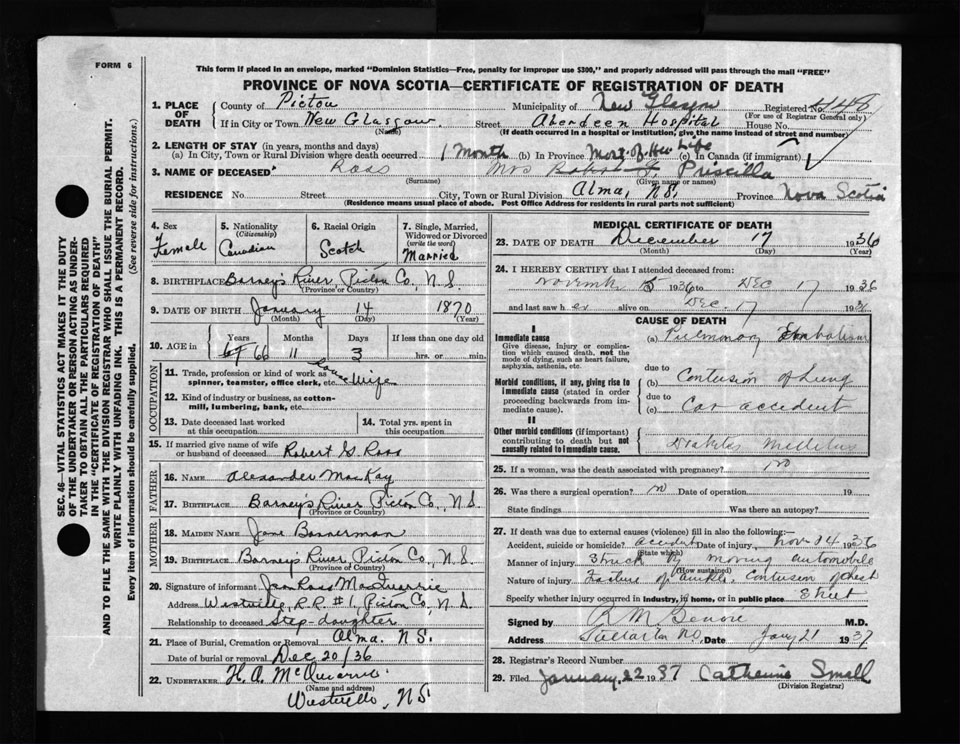 FORM 6
This form if placed in an envelope, marked "Dominion Statistics—Free, penalty for improper use $300," and properly addressed will pass through the mail "FREE"
PROVINCE OF NOVA SCOTIA—CERTIFICATE OF REGISTRATION OF DEATH
1. PLACE OF DEATH County of Pictou Municipality of New Glasgow Registered No. 448
(For use of Registrar General only)
If in City or Town New Glasgow Street Aberdeen Hospital House No.
(Name) (If death occurred in a hospital or institution, give the name instead of street and number)
2. LENGTH OF STAY (in years, months and days)
(a) In City, Town or Rural Division where death occurred 1 Month (b) In Province Most of Her Life (c) In Canada (if immigrant)
3. NAME OF DECEASED Ross Mrs Robt Priscilla
(Surname) (Given name or names)
RESIDENCE No. Street City, Town or Rural Division Alma, N.S. Province Nova Scotia
(Residence means usual place of abode. Post Office Address for residents in rural parts not sufficient)
4. Sex Female
5. Nationality (Citizenship) Canadian
6. Racial Origin Scotch
7. Single, Married, Widowed or Divorced (write the word) Married
8. BIRTHPLACE Barney's River, Pictou Co, N.S.
(Province or Country)
9. DATE OF BIRTH January 14 1870
(Month) (Day) (Year)
10. AGE in Years 66 Months 11 Days 3 If less than one day old hrs. or min.
OCCUPATION
11. Trade, profession or kind of work as spinner, teamster, office clerk, etc. House Wife
12. Kind of industry or business, as cotton-mill, lumbering, bank, etc.
13. Date deceased last worked at this occupation
14. Total yrs. spent in this occupation
15. If married give name of wife or husband of deceased Robert G. Ross
FATHER
16. NAME Alexander MacKay
17. BIRTHPLACE Barney's River, Pictou Co, N.S.
(Province or Country)
MOTHER
18. MAIDEN NAME Jane Bannerman
19. BIRTHPLACE Barney's River, Pictou Co, N.S.
(Province or Country)
20. Signature of informant Jean Ross MacQuarrie
Address Westville, R.R. #1, Pictou Co, N.S.
Relationship to deceased Step-daughter
21. Place of Burial, Cremation or Removal Alma. N.S.
Date of burial or removal Dec 20/36
22. UNDERTAKER H. A. McQuarrie
(Name and address)
Westville, N.S.
MEDICAL CERTIFICATE OF DEATH
23. DATE OF DEATH December 17 1936
(Month) (Day) (Year)
24. I HEREBY CERTIFY that I attended deceased from:
November 15 1936 to Dec 17 1936
and last saw her alive on Dec. 17 193
CAUSE OF DEATH
I
Immediate cause
Give disease, injury or complication which caused death, not the mode of dying, such as heart failure, asphyxia, asthenia, etc.
(a) Pulmonary Embolism
due to
Morbid conditions, if any, giving rise to immediate cause (stated in order proceeding backwards from immediate cause).
(b) Contusion of Lung
due to
(c) Car accident
II
Other morbid conditions (if important) contributing to death but not causally related to immediate cause.
Diabetes Mellitus
25. If a woman, was the death associated with pregnancy? no
26. Was there a surgical operation? no Date of operation 19
State findings Was there an autopsy?
27. If death was due to external causes (violence) fill in also the following:—
Accident, suicide or homicide? accident Date of injury Nov 14 1936
(State which)
Manner of injury Struck by moving automobile
(How sustained)
Nature of injury Fracture of ankle, contusion of chest
Specify whether injury occurred in industry, in home, or in public place Street
Signed by M.D.
Address Stellarton NS Date Jany 21 1937
28. Registrar's Record Number
29. Filed January 22 1937 Catherine Small
(Division Registrar)
SEC. 46—VITAL STATISTICS ACT MAKES IT THE DUTY
OF THE UNDERTAKER OR PERSON ACTING AS UNDERTAKER TO OBTAIN ALL THE PARTICULARS REQUIRED
IN THE "CERTIFICATE OF REGISTRATION OF DEATH"
AND TO FILE THE SAME WITH THE DIVISION REGISTRAR WHO SHALL ISSUE THE BURIAL PERMIT.
WRITE PLAINLY WITH UNFADING INK. THIS IS A PERMANENT RECORD.
Every item of information should be carefully supplied. (See reverse side for instructions.)